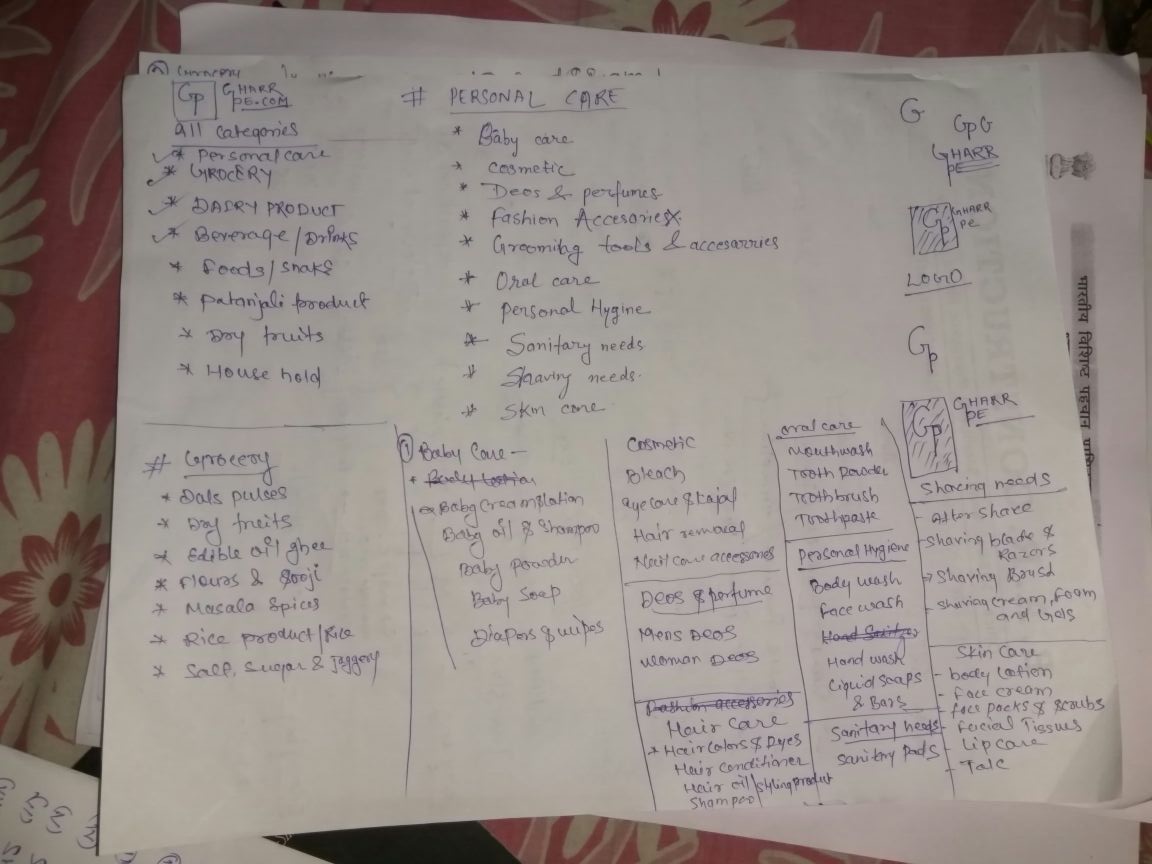 Gp GHARR
PE.COM
All Categories
* Personal care
* GROCERY
* DAIRY PRODUCT
* Beverage/Drinks
* Foods/snaks
* Patanjali product
* Dry fruits
* House hold
# PERSONAL CARE
* Baby care
* cosmetic
* Deos & perfumes
* Fashion Accesories
* Grooming tools & accesarries
* Oral care
* Personal Hygine
* Sanitary needs
* Shaving needs.
* Skin care
G
GpG
GHARR
PE
Gp GHARR
PE
LOGO
Gp
Gp GHARR
PE
# Grocery
* Dals pulses
* Dry fruits
* Edible oil ghee
* Flours & Sooji
* Masala Spices
* Rice product/Rice
* Salt, Sugar & Jaggery
① Baby Care -
* Body Lotion
Baby Cream & lation
Baby oil & Shampoo
Baby Powder
Baby Soap
Diapers & wipes
Cosmetic
Bleach
eye care & Kajal
Hair removal
Nail care accessories
Deos & perfume
Mens Deos
Woman Deos
Fashion accessories
Hair Care
* Hair Colors & Dyes
Hair conditioner
Hair oil/styling product
Shampoo
oral care
Mouthwash
Tooth Powder
Toothbrush
Toothpaste
Personal Hygiene
Body wash
face wash
Hand Sanitizer
Hand wash
Liquid soaps
& Bars
Sanitary needs
Sanitry Pads
Shaving needs
- After Shave
- Shaving blade &
Razors
- Shaving Brush
- Shaving cream, foam
and Gels
Skin Care
- body lotion
- face cream
- face packs & scrubs
- Facial Tissues
- Lip care
- Talc
भारतीय विशिष्ट पहचान